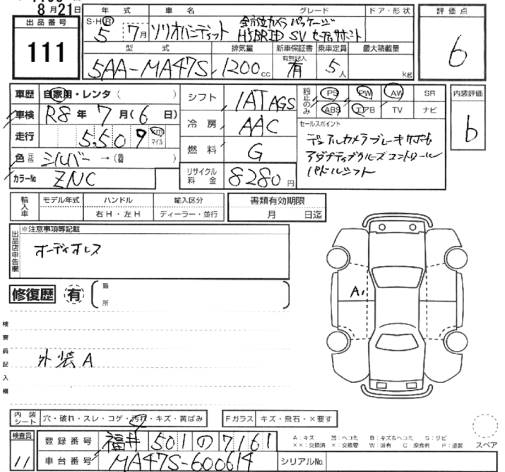 8月21日
出品番号 年式 車名 グレード ドア・形状 評価点
111
S・H・R 5 7月 ソリオバンディット 全方位カメラパッケージ
HYBRID SV セーフティサポート
6
型式 排気量 新車保証書 乗車定員 最大積載量
5AA-MA47S 1200cc 有 5人 kg
車歴 自家用・レンタ
シフト IAT AGS
PS PW AW SR
ABS エアB TV ナビ
内装評価
b
車検 R8年7月(6)日
冷房 AAC
セールスポイント
デュアルカメラブレーキサポート
アダプティブクルーズコントロール
パドルシフト
走行 5,509 km マイル
燃料 G
色 シルバー →
カラーNo ZNC
リサイクル料金 8280円
輸入車 モデル年式 ハンドル 輸入区分 書類有効期限
年 右H・左H ディーラー・並行 月 日迄
出品店申告欄 ※注意事項等記載
オーディオレス
修復歴 有 箇所
A1
検査員記入欄
外装A
内装シート 穴・破れ・スレ・コゲ・汚・キズ・黄ばみ Fガラス キズ・飛石・×要す
検査員 11
登録番号 福井 501 の 7161
スペア
車台番号 MA47S-600614 シリアルNo